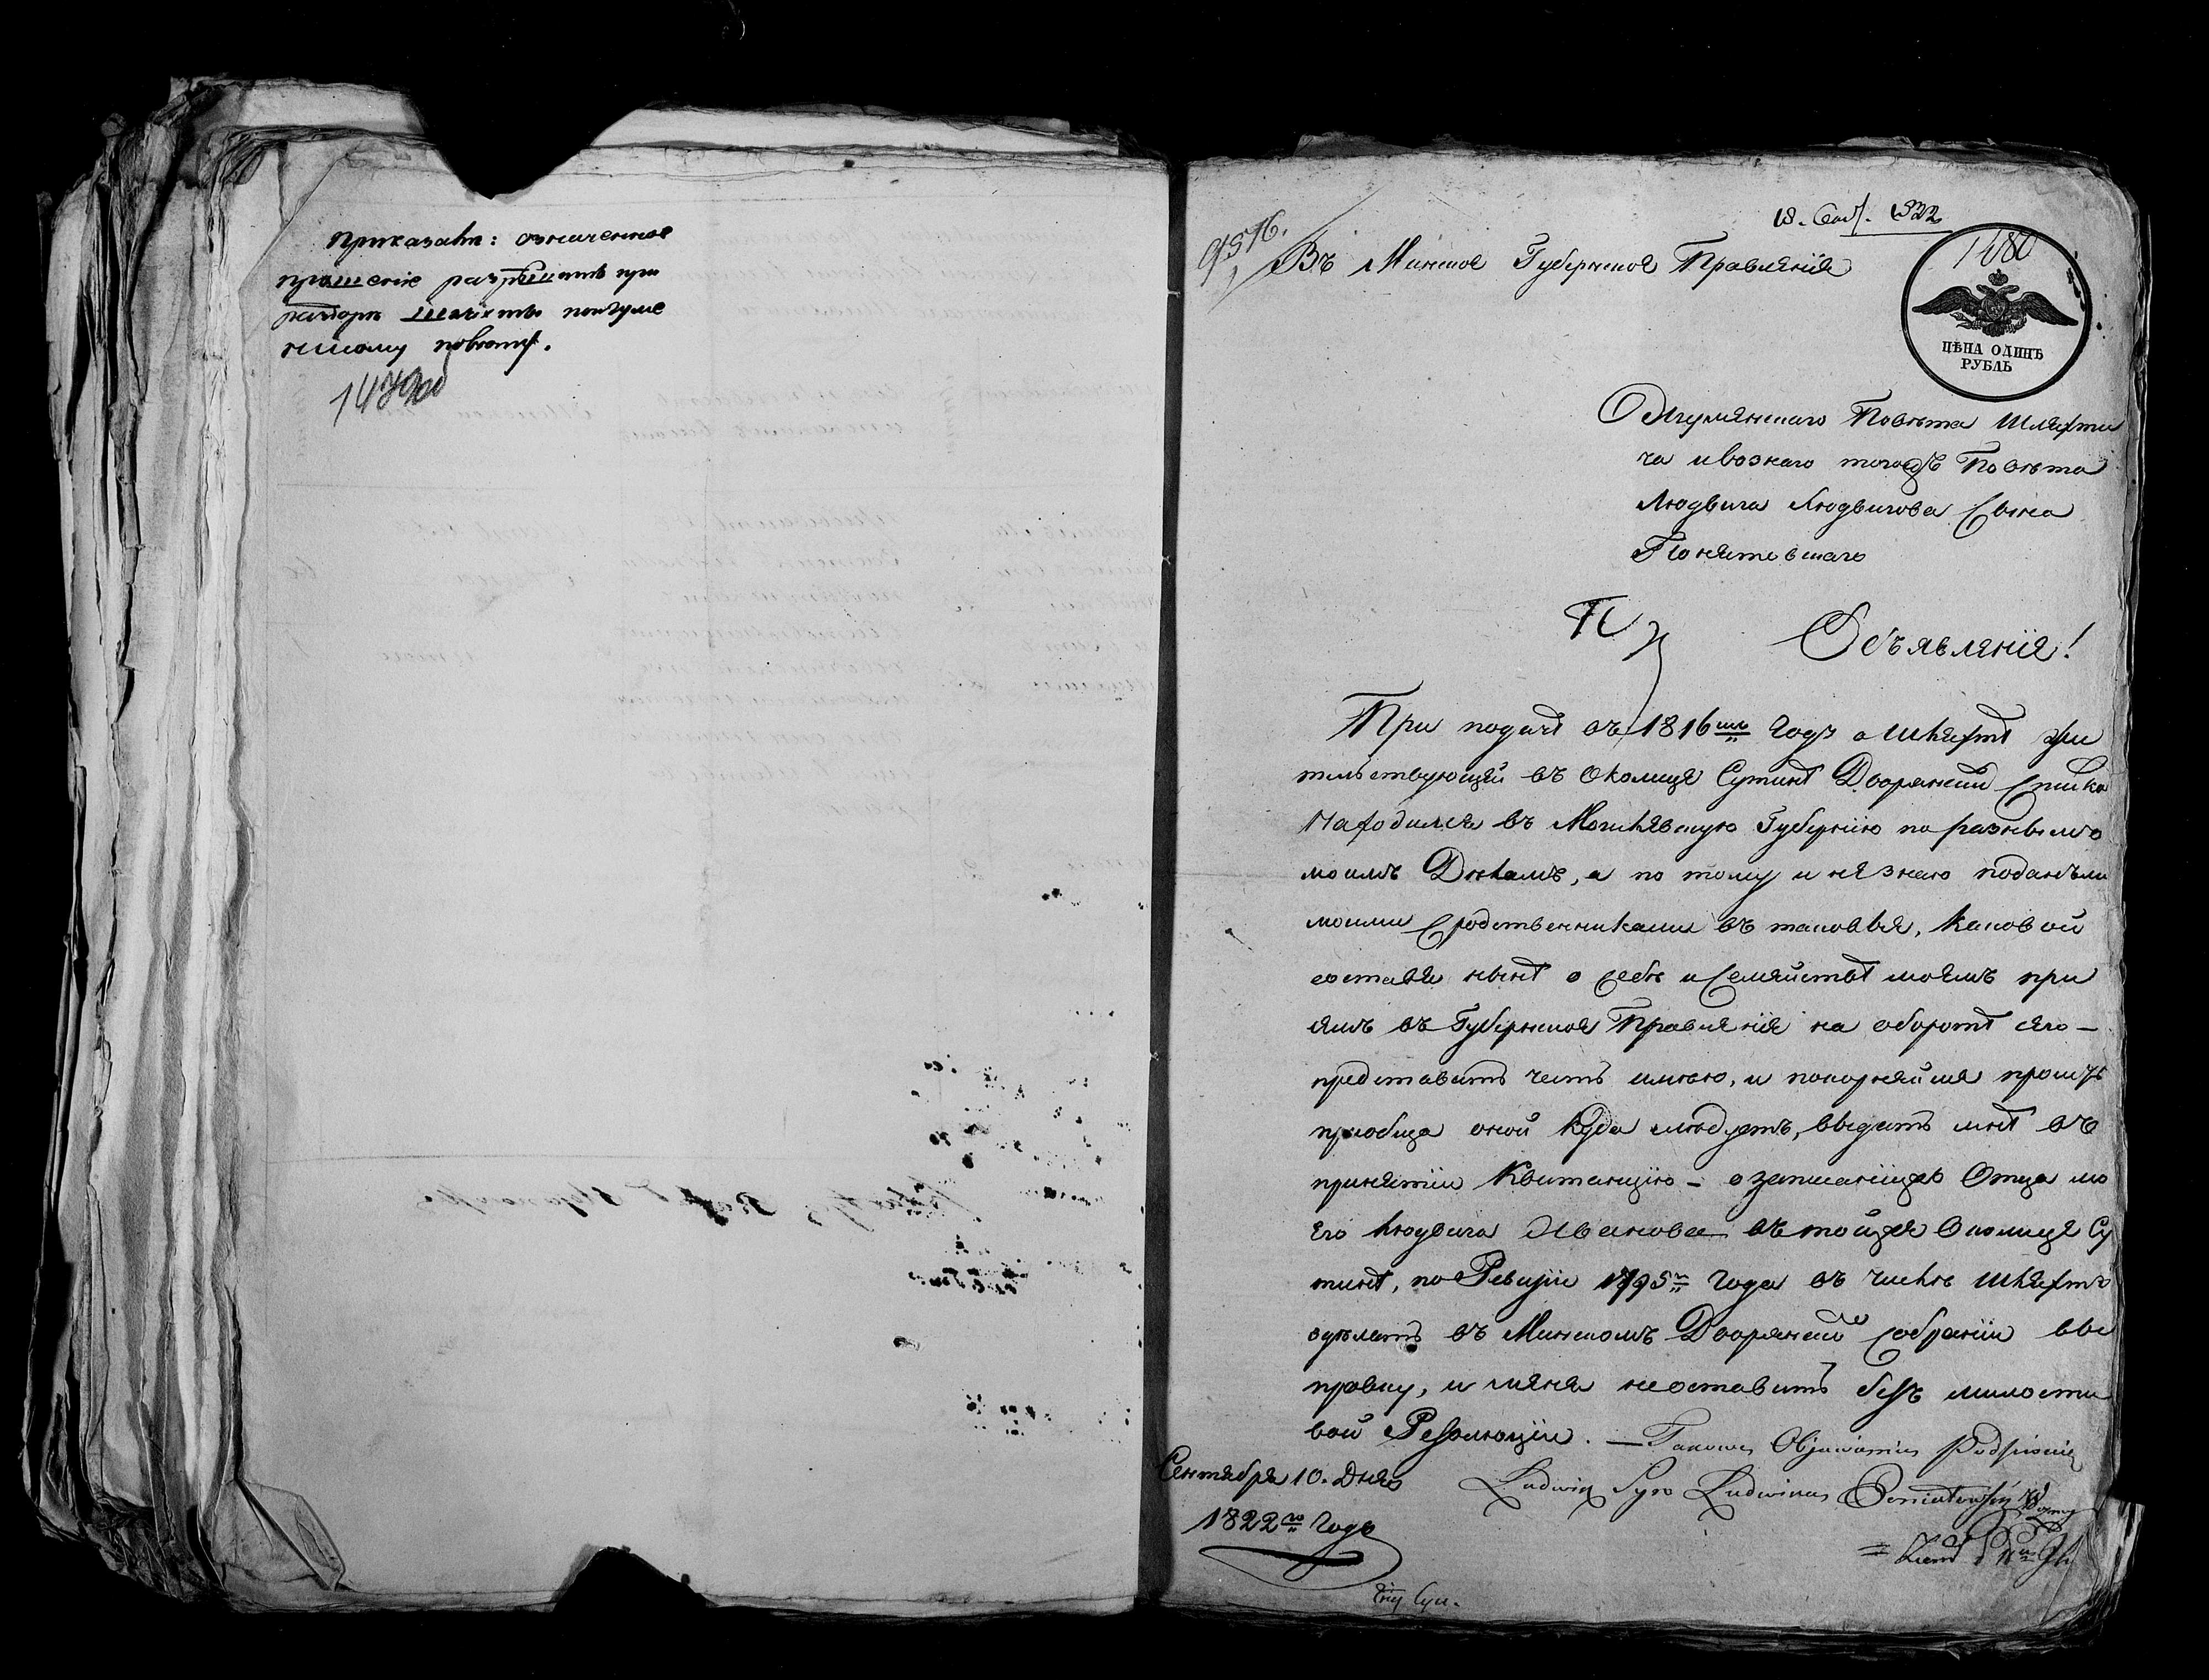 Приказали: означенное
прошеніе разрешить при
разборѣ шляхты поигуме
нскому повѣту.
1479 об
18. Сент. 1822
9576.
1480
Въ Минское Губернское Правленіе
ЦѢНА ОДИНЪ
РУБЛЬ
Отъ Игуменскаго Повѣта Шляхти
ча ивознаго тогожъ Повѣта
Людвига Людвигова Сына
Понятовскаго
Объявленіе!
При подачѣ въ 1816мъ Годѣ о Шляхтѣ жи
тельствующей въ Околице Сутинѣ Дворянской Списка
Находился въ Могилевскую Губернію по разнымъ
моимъ Дѣламъ, а по тому и не знаю поданъли
моими Сродственниками въ таковые, каковой
составя нынѣ о Себѣ и Семействѣ моемъ при
емъ въ Губернское Правленіе на оборотѣ сего —
представить честь имѣю, и покорнейше прошу
приобща оной куда слѣдуетъ, выдать мнѣ въ
принятіи Квитанцію — о записаніижъ Отца мо
его Людвига Иванова въ тойже Околице Су
тинѣ, по Ревизіи 1795го Года въ числѣ Шляхты
зделать въ Минскомъ Дворянском Собраніи вы
правку, и меня неоставить безъ милости
вой Резолюціи. — Takowe Objawienie Podpisuię
Ludwig Syn Ludwika Poniatowski Wozny
Сентября 10. Дня
1822го Года